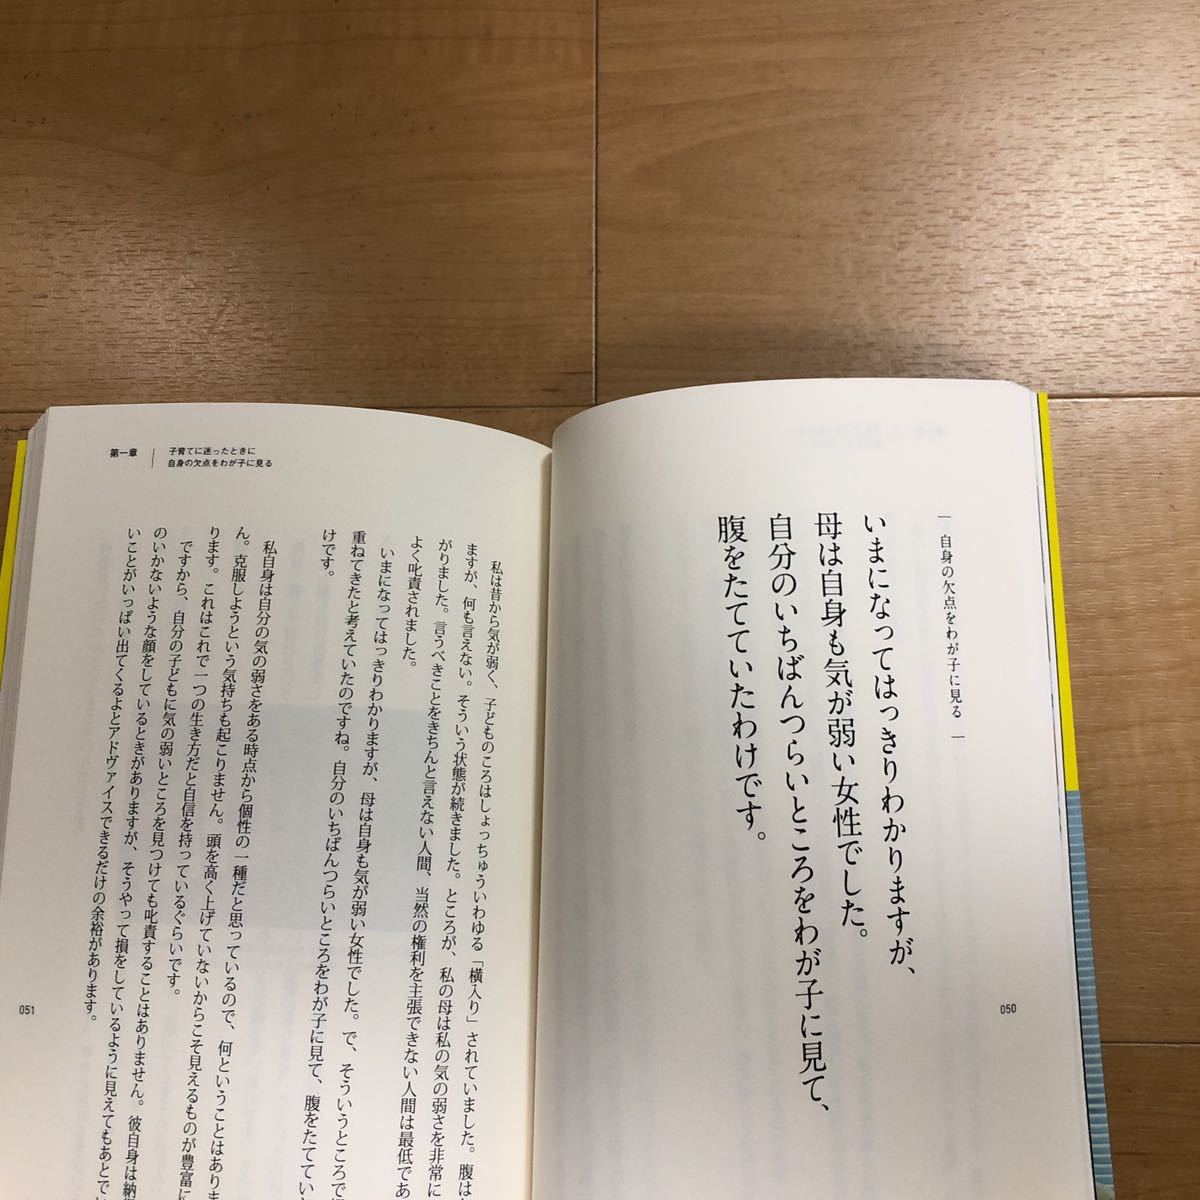 自身の欠点をわが子に見る
いまになってはっきりわかりますが、
母は自身も気が弱い女性でした。
自分のいちばんつらいところをわが子に見て、
腹をたてていたわけです。
050
第一章
子育てに迷ったときに
自身の欠点をわが子に見る
私は昔から気が弱く、子どものころはしょっちゅういわゆる「横入り」されていました。腹は
ますが、何も言えない。そういう状態が続きました。ところが、私の母は私の気の弱さを非常に
がりました。言うべきことをきちんと言えない人間、当然の権利を主張できない人間は最低であ
よく叱責されました。
いまになってはっきりわかりますが、母は自身も気が弱い女性でした。で、そういうところで
重ねてきたと考えていたのですね。自分のいちばんつらいところをわが子に見て、腹をたててい
けです。
私自身は自分の気の弱さをある時点から個性の一種だと思っているので、何ということはあり
ん。克服しようという気持ちも起こりません。頭を高く上げていないからこそ見えるものが豊富に
ります。これはこれで一つの生き方だと自信を持っているぐらいです。
ですから、自分の子どもに気の弱いところを見つけても叱責することはありません。彼自身は納
のいかないような顔をしているときがありますが、そうやって損をしているように見えてもあとで
いことがいっぱい出てくるよとアドヴァイスできるだけの余裕があります。
051